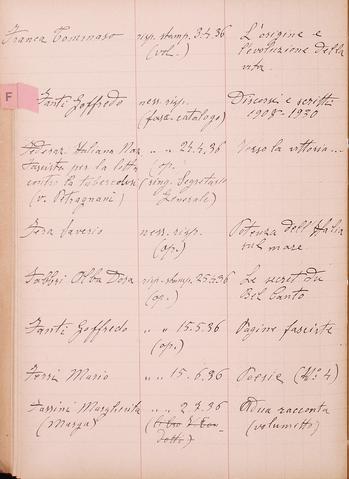 Franca Tommaso risp. stamp. 3.4.36 L'origine e
(vol.) l'evoluzione della
vita.
F
Fanti Goffredo ness. risp. Discorsi e scritti
(fasc. catalogo) 1908-1930
Federaz. Italiana Naz. „ „ 24.4.36 Verso la vittoria...
Fascista per la lotta (op.)
contro la tubercolosi (ring. Segretario
(v. Petragnani) Generale)
Fera Saverio ness. risp. Potenza dell'Italia
(op.) sul mare
Fabbri Alba Dora risp. stamp. 25.4.36 Le secret du
(op.) Bel Canto
Fanti Goffredo „ „ 15.5.36 Pagine fasciste
(op.)
Ferri Mario „ „ 15.6.36 Poesie (N° 4)
Fassini Margherita „ „ 2.3.36 Adua racconta
(Marga) (volumetto)